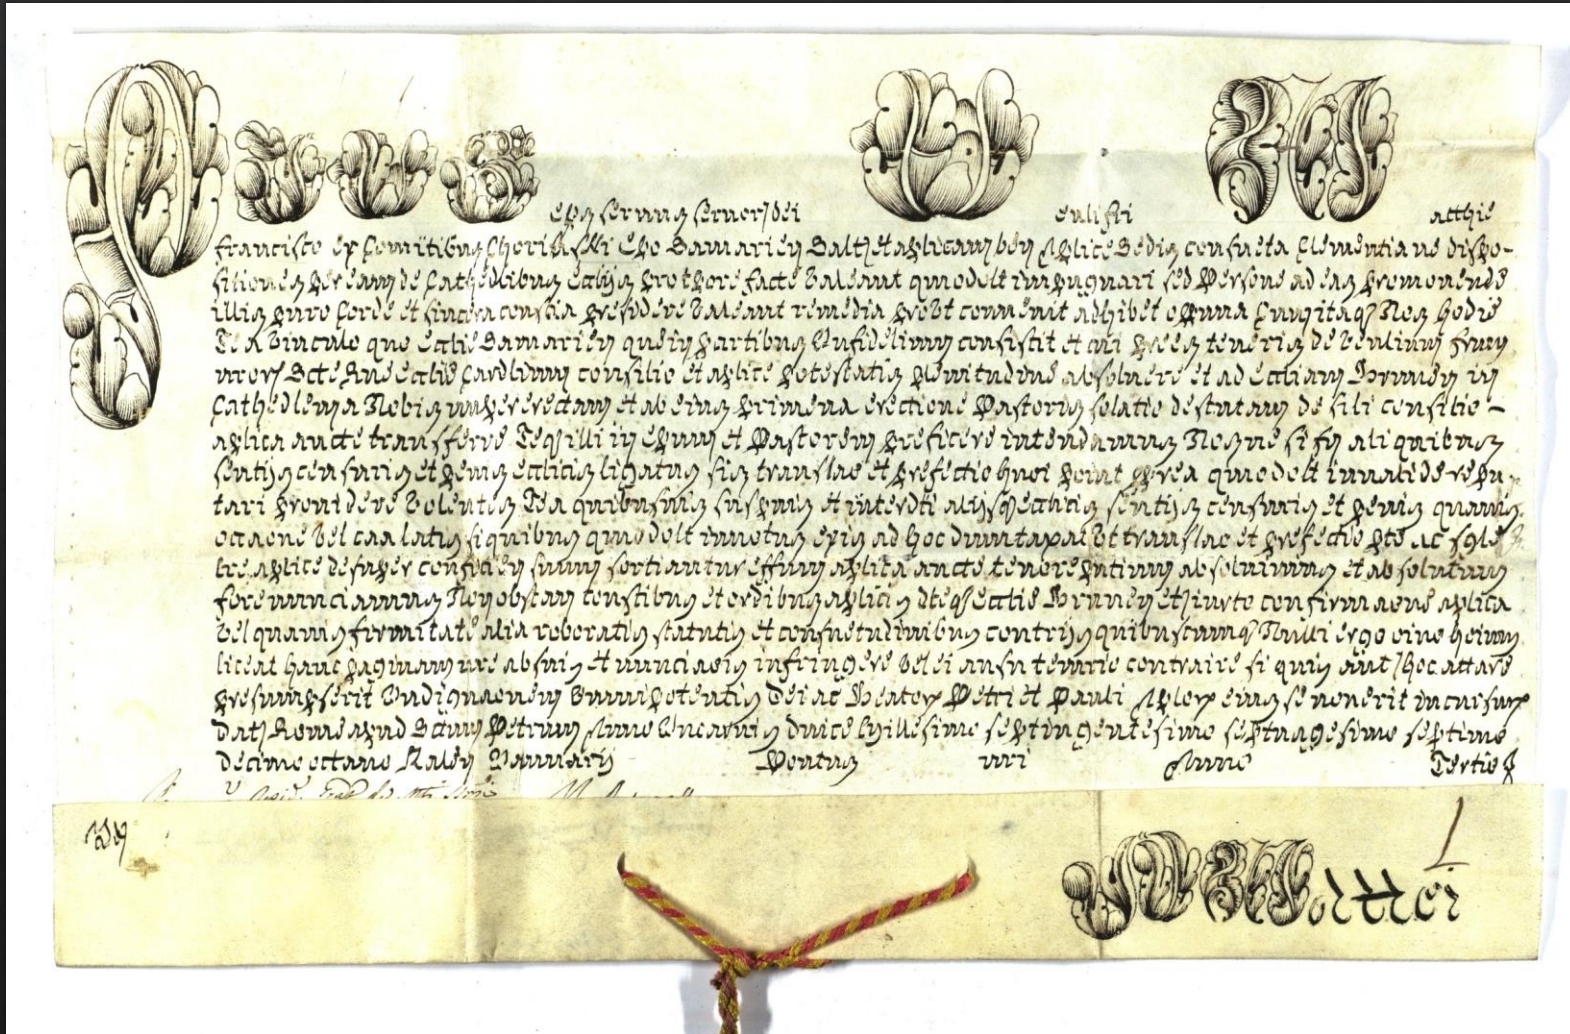 PIUS Eps servus servor dei V fri M atthie
francisco ex Comitibus Chorinski Epo Samarien Saltem et aplicam ben Aplice Sedis consueta Clementia ne dispo-
sitiones per eam de Cathedlibus ecclijs pro tpore facte valeant quodolt impugnari sed Persone ad eas promovende
illis puro Corde et sincera conscia presidere valeant remedia prout convenit adhibet opptuna Cupitaq Nos hodie
Te a vinculo quo ecclie Samarien que in partibus Infidelium consistit et cui preesse teneris de venlium frum
nror Scte Rne ecclie Cardlium consilio et aplice potestatis plenitudine absolvere et ad eccliam Brunen in
Cathedlem a Nobis nuper erectam et ab eius primeva erectione Pastoris solatio destutam de sili consilio -
aplica aucte transferre Teq illi in epum et Pastorem preficere intendamus Nos ne si fs aliquibus
sentijs censuris et penis ecclicis ligatus sis translao et prefectio hmoi point prea quodolt invalide repu-
tari providere volentes Te a quibusvis suspnis et interdti alijsq ecclicis sentijs censuris et penis quavis
occaone vel caa latis si quibus quodolt innotus exis ad hoc dumtaxat ut translao et prefectio pte ac sgle
lre aplice desuper conficien suum sortiantur effum aplica aucte tenore pntium absolvimus et absolutum
fore nunciamus Non obstan constibus et ordibus aplicis dteq ecclie Brunen et iurto confirmaone aplica
vel quavis firmitate alia roboratis statutis et consuetudinibus contrijs quibuscumq Nulli ergo oino hoium
liceat hanc paginam nre absnis et nunciaois infringere vel ei ausu temrio contraire si quis aut hoc attare
presumpserit Indignaonem omnipotentis Dei ac Beator Petri et Pauli Aplor eius se noverit incursur
Dat Rome apud Sctum Petrum Anno Incarnis dnice Millesimo septingentesimo septuagesimo septimo
decimo octavo Kalen Januarij Pontus nri Anno Tertio